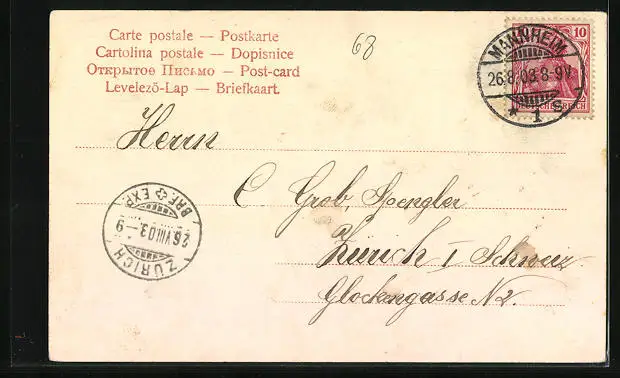 Carte postale — Postkarte
Cartolina postale — Dopisnice
Открытое Письмо — Post-card
Levelező-Lap — Briefkaart.
68
MANNHEIM
26.8.03.8-9V.
* 1 S.
10
DEUTSCHES REICH
Herrn
C Grob, Spengler
Zürich I Schweiz
Glockengasse N2.
BRF. EXP.
26.VIII.03.-9
ZÜRICH